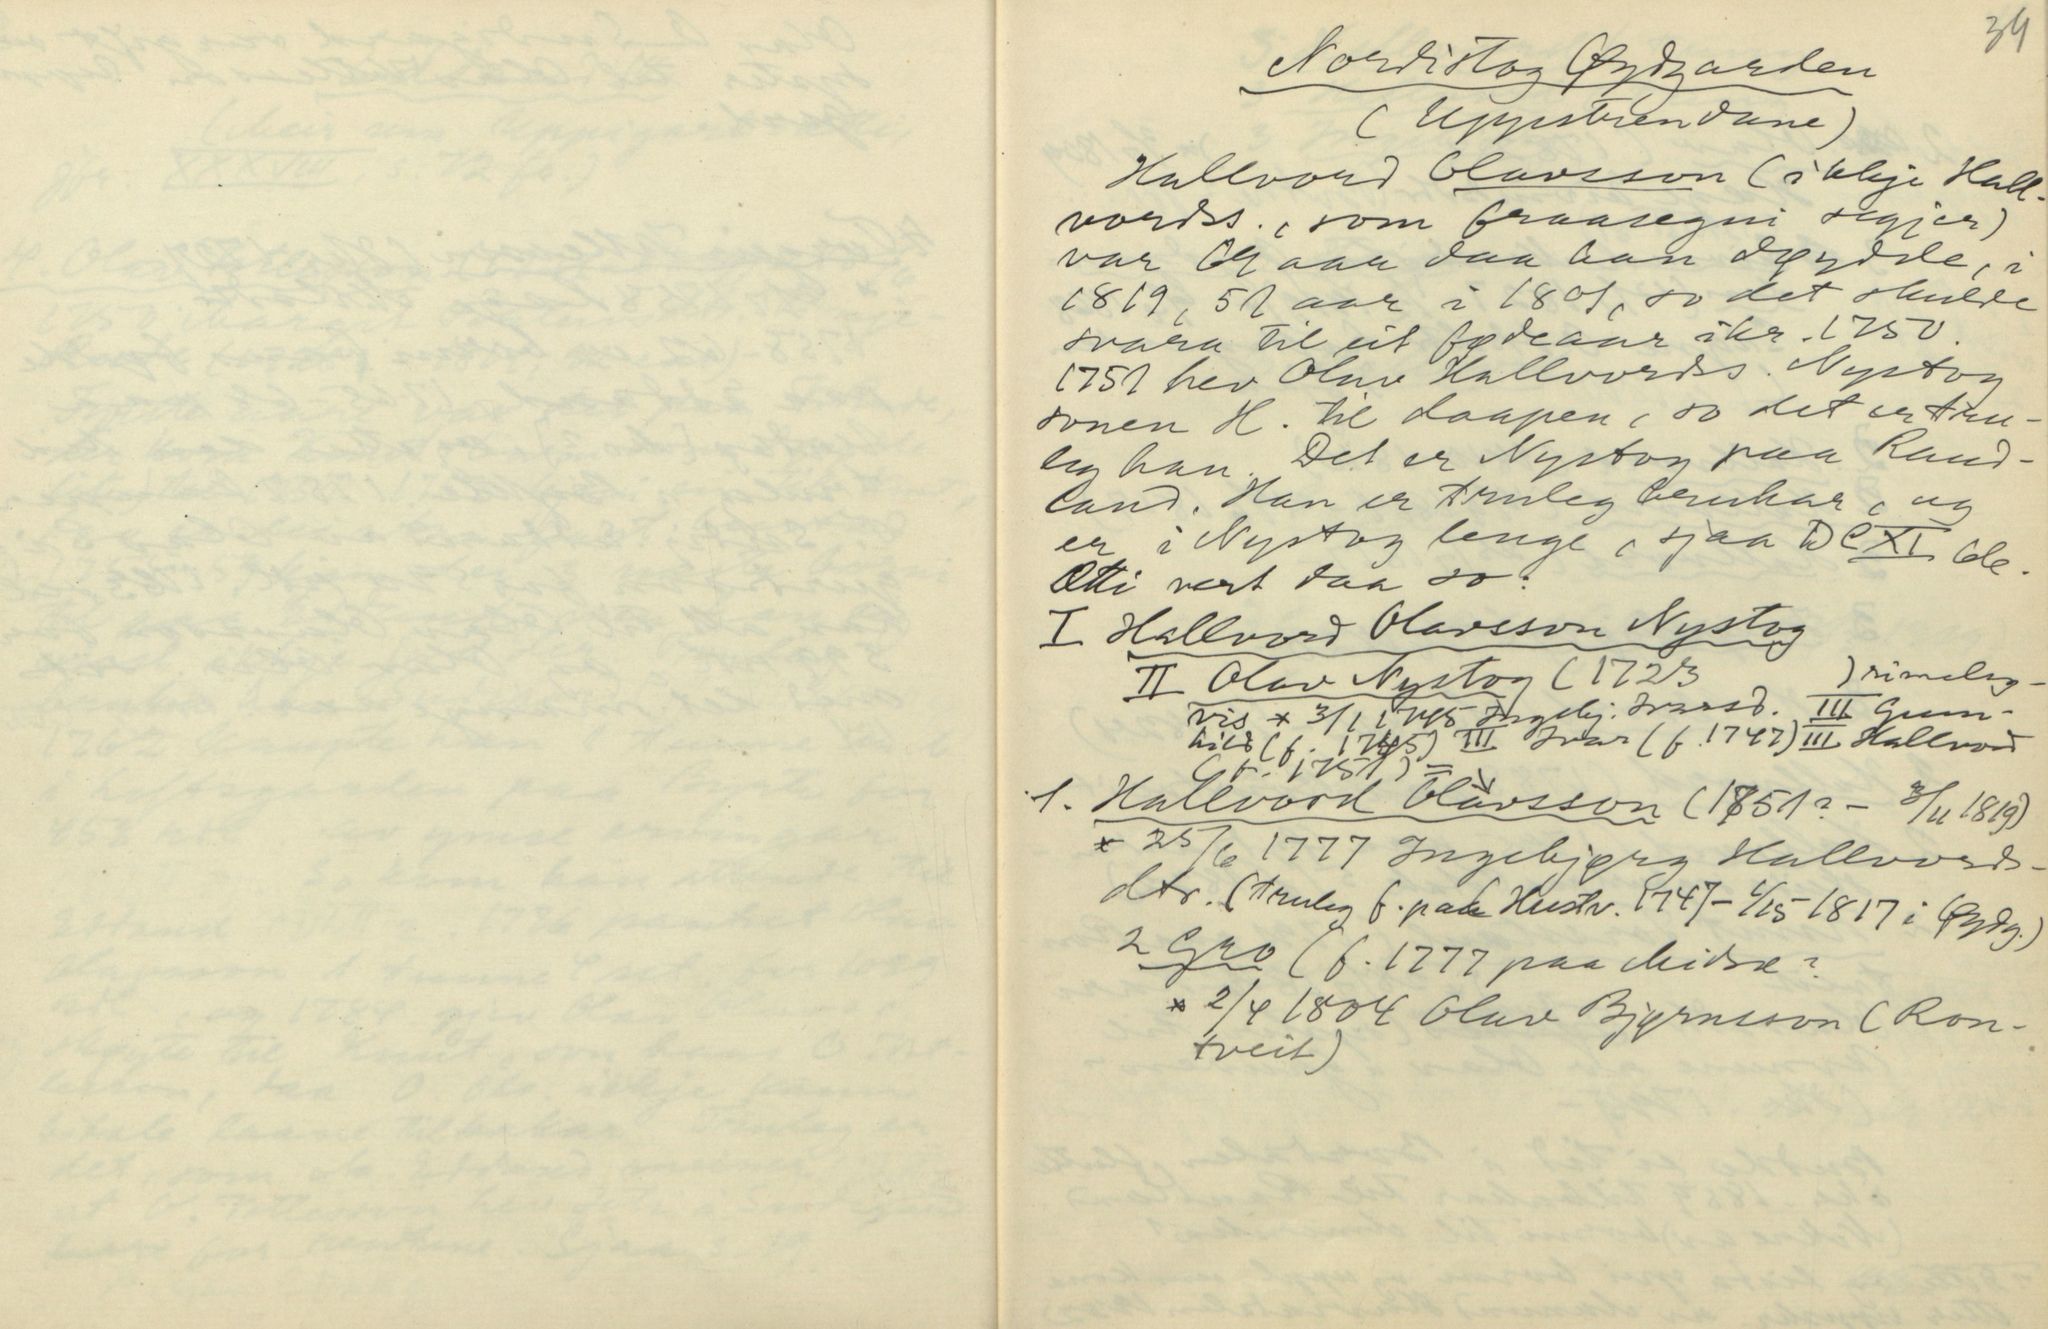 34
Nordistog Øydgarden
(Uppstrendane)
Hallvord Olavsson (ikkje Hall-
vordss., som fraasegni segjer)
var 69 aar daa han døydde, i
1819, 51 aar i 1801, so det skulde
svara til eit fødeaar ikr. 1750.
1751 hev Olav Hallvordss. Nystog
sonen H. til daapen, so det er tru-
leg han. Det er Nystog paa Raud-
land. Han er truleg brukar, og
er i Nystog lenge, sjaa DCXI
Ætti vert daa so:
I Hallvord Olavsson Nystog
II Olav Nystog (1723 ) rimeleg-
vis * 3/1 1745 Ingebj. Ivarsd. III Gunn-
hild (f. 1745) III Ivar (f. 1747) III Hallvord
(f. 1751) =
1. Hallvord Olavsson (1751? - 3/11 1819)
* 25/6 1777 Ingebjørg Hallvords-
dtr. (truleg f. paa Hustv. 1747 - 1817 i Øydg.)
2 Gro (f. 1777 paa Midsæ?
* 2/4 1804 Olav Bjørnsson (Ron-
tveit)